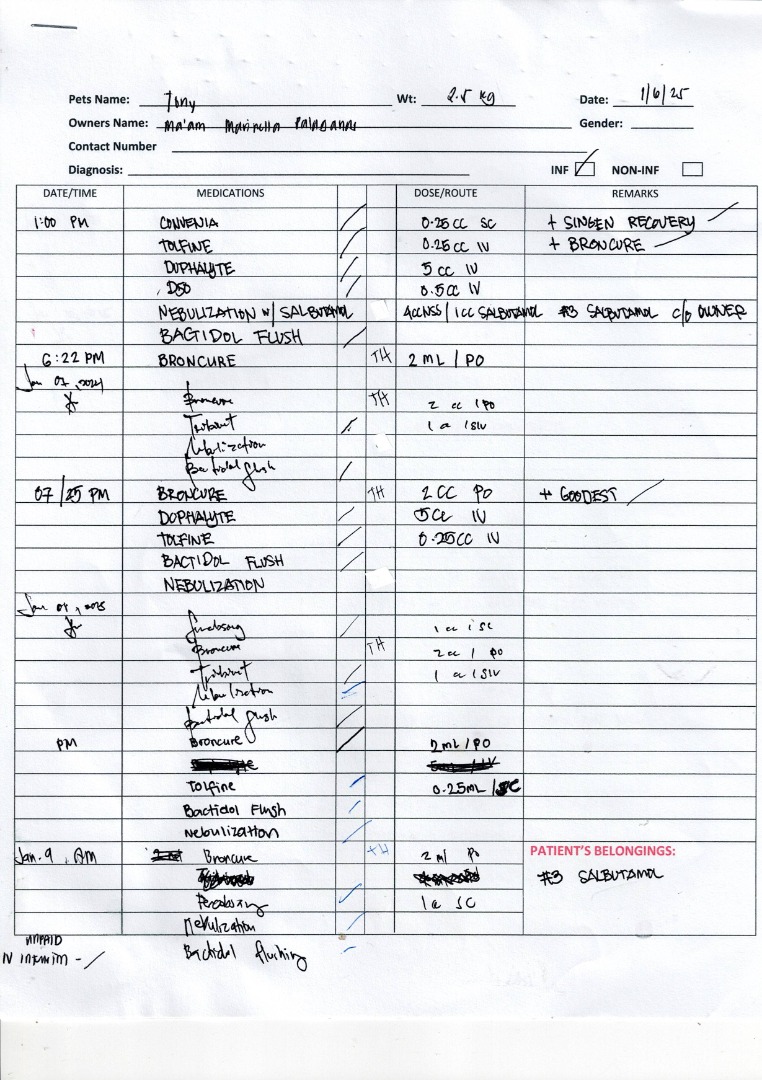 Pets Name: Tony Wt: 2.5 kg Date: 1/6/25
Owners Name: Ma'am Gender:
Contact Number
Diagnosis: INF NON-INF
DATE/TIME MEDICATIONS DOSE/ROUTE REMARKS
1:00 PM CONVENIA 0.25 CC SC + SINGEN RECOVERY
TOLFINE 0.25 CC IV + BRONCURE
DUPHALYTE 5 CC IV
D50 0.5 CC IV
NEBULIZATION W/ SALBUTAMOL 4CCNSS / 1CC SALBUTAMOL #3 SALBUTAMOL C/O OWNER
BACTIDOL FLUSH
6:22 PM BRONCURE TH 2 ML / PO
Jan 07, 2024
Broncure TH 2 cc / PO
1 cc / SIV
Nebulization
Bactidol flush
07/25 PM BRONCURE TH 2 CC PO + GOODEST
DOPHALYTE 5CC IV
TOLFINE 0.25CC IV
BACTIDOL FLUSH
NEBULIZATION
1 cc / SC
Broncure TH 2 cc / PO
1 cc / SIV
Nebulization
Bactidol flush
PM Broncure 2 mL / PO
Tolfine 0.25mL / SC
Bactidol Flush
Nebulization
Jan. 9, AM Broncure TH 2 ml PO
PATIENT'S BELONGINGS:
#3 SALBUTAMOL
1 cc SC
Nebulization
UNPAID
Bactidol flushing